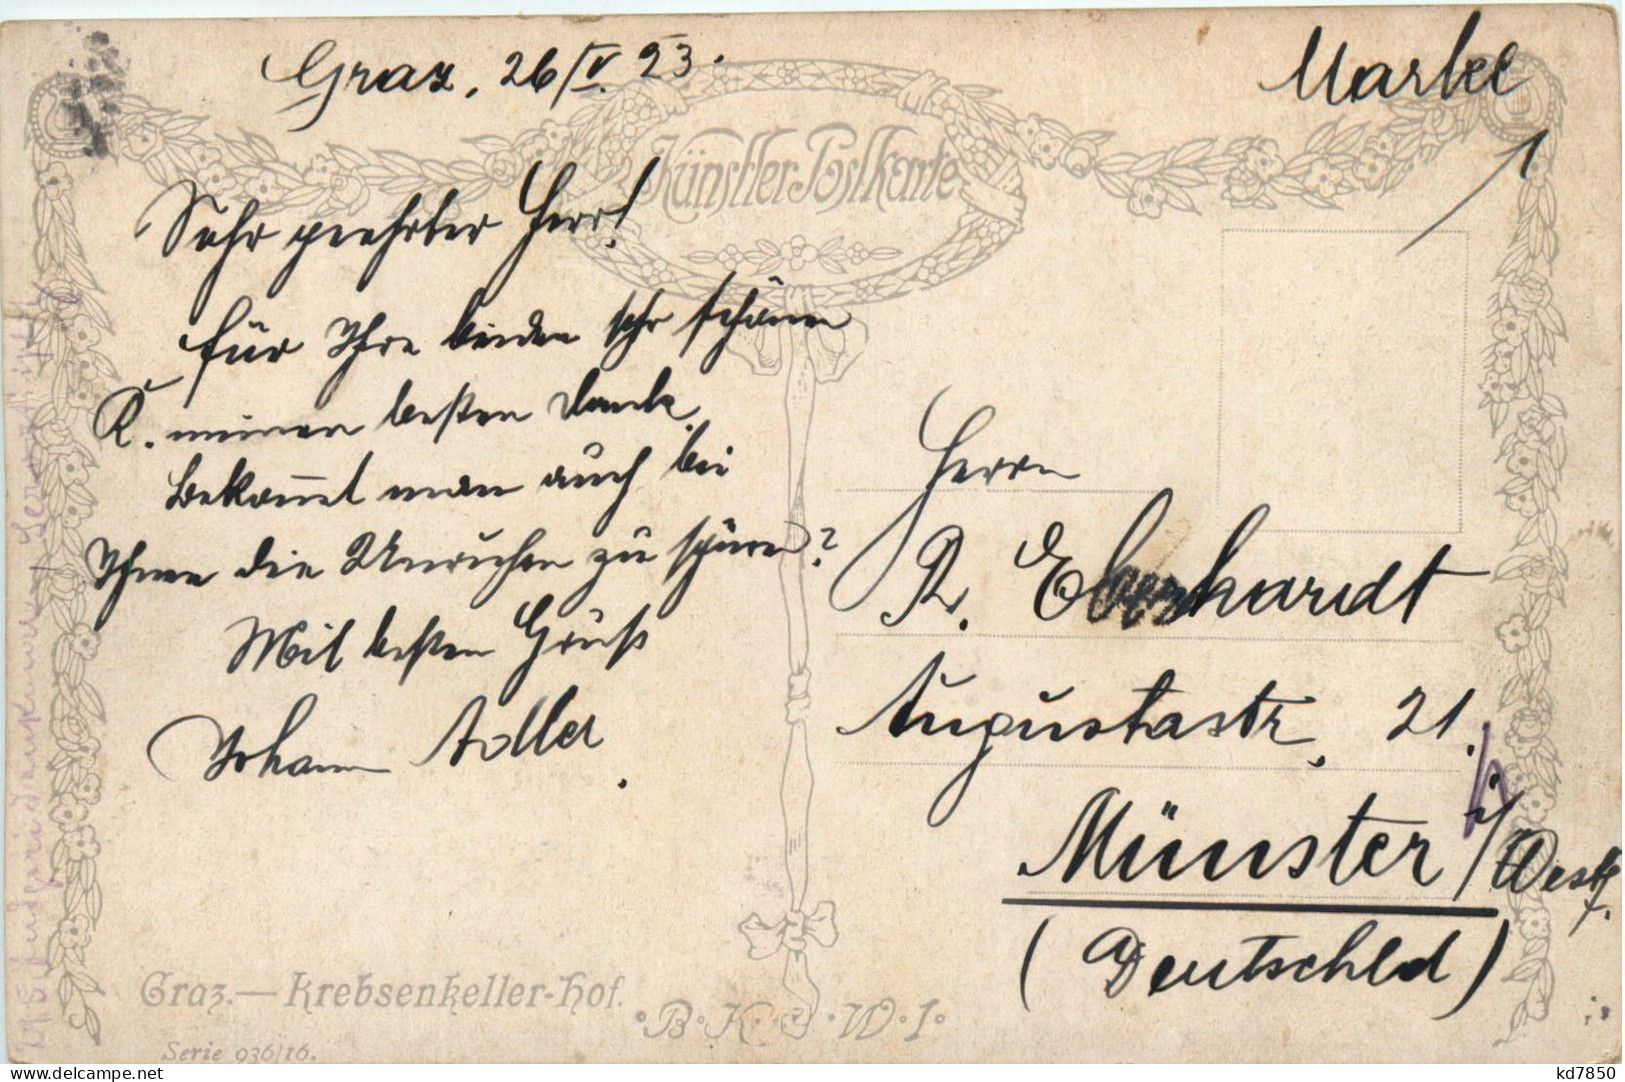 Graz, 26/V. 23.
Marke
Künstler Postkarte
Sehr geehrter Herr!
für Ihre beiden sehr schönen
K. meinen besten Dank.
Bekom̅t man auch bei
Ihnen die Unruhen zu spüren?
Mit besten Gruß
Johann Adler.
Herrn
R. Eberhardt
Augustastr. 21.
Münster i/Westf.
(Deutschld)
Graz.— Krebsenkeller-Hof.
Serie 936/16.
•B•K•W•I•
delcampe.net
kd7850